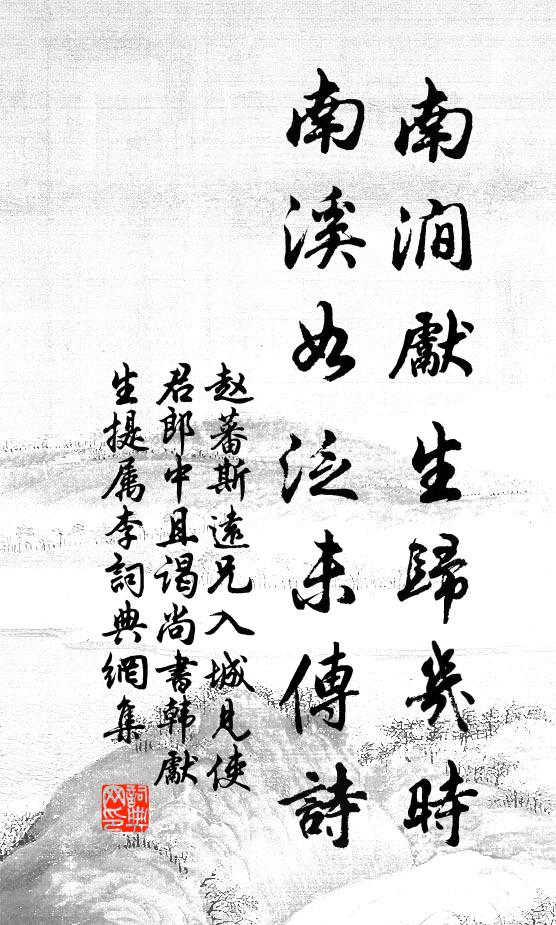 南澗獻生歸幾時
南溪如泛未傳詩
赵蕃斯遠兄入城見使
君郎中且谒尚書韩獻
生提属李詞典網集